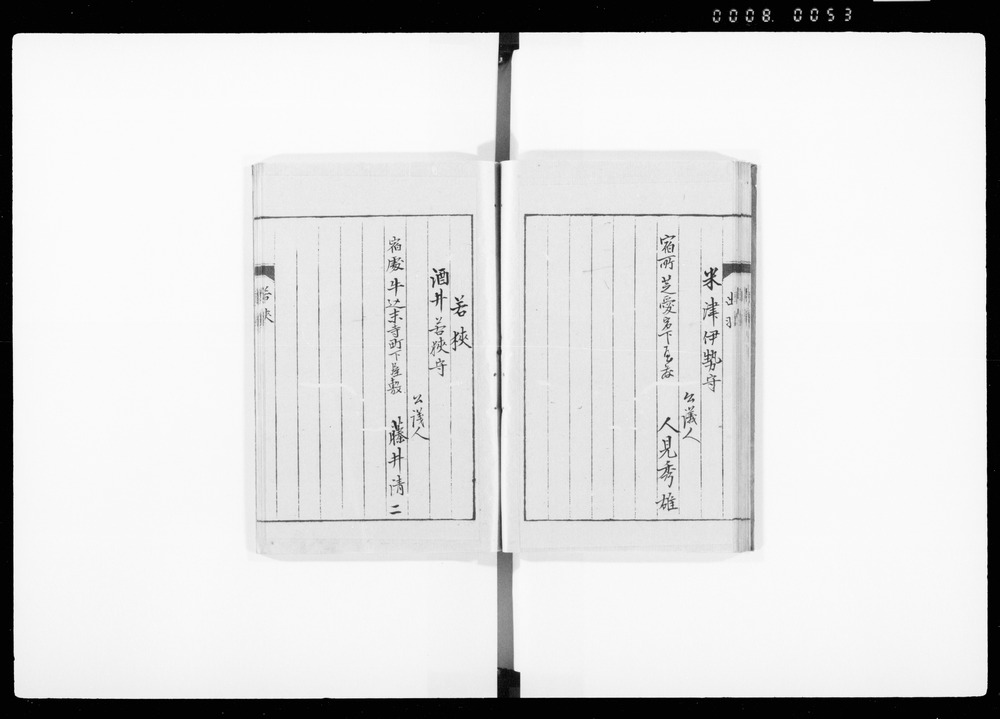 0008. 0053
出羽
米津伊勢守
公議人
宿所 芝愛宕下屋敷
人見秀雄
若狹
酒井若狹守
公議人
宿處 牛込末寺町下屋敷
藤井清二
若狹